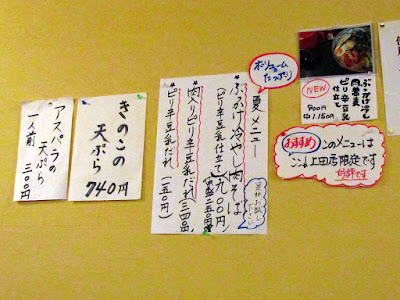 アスパラの
天ぷら
一人前 三〇〇円
きのこの
天ぷら
740円
ボリューム
たっぷり
夏メニュー
ぶっかけ冷やし肉そば
(ピリ辛豆乳仕立て)九〇〇円
肉入りピリ辛豆乳だれ
ピリ辛豆乳だれ(一五〇円)
ぶっかけ冷し
肉蕎麦
ピリ辛豆乳
仕立て
NEW
900円
中1.150円
おすすめ
このメニューは
ここ上田店限定です
好評です